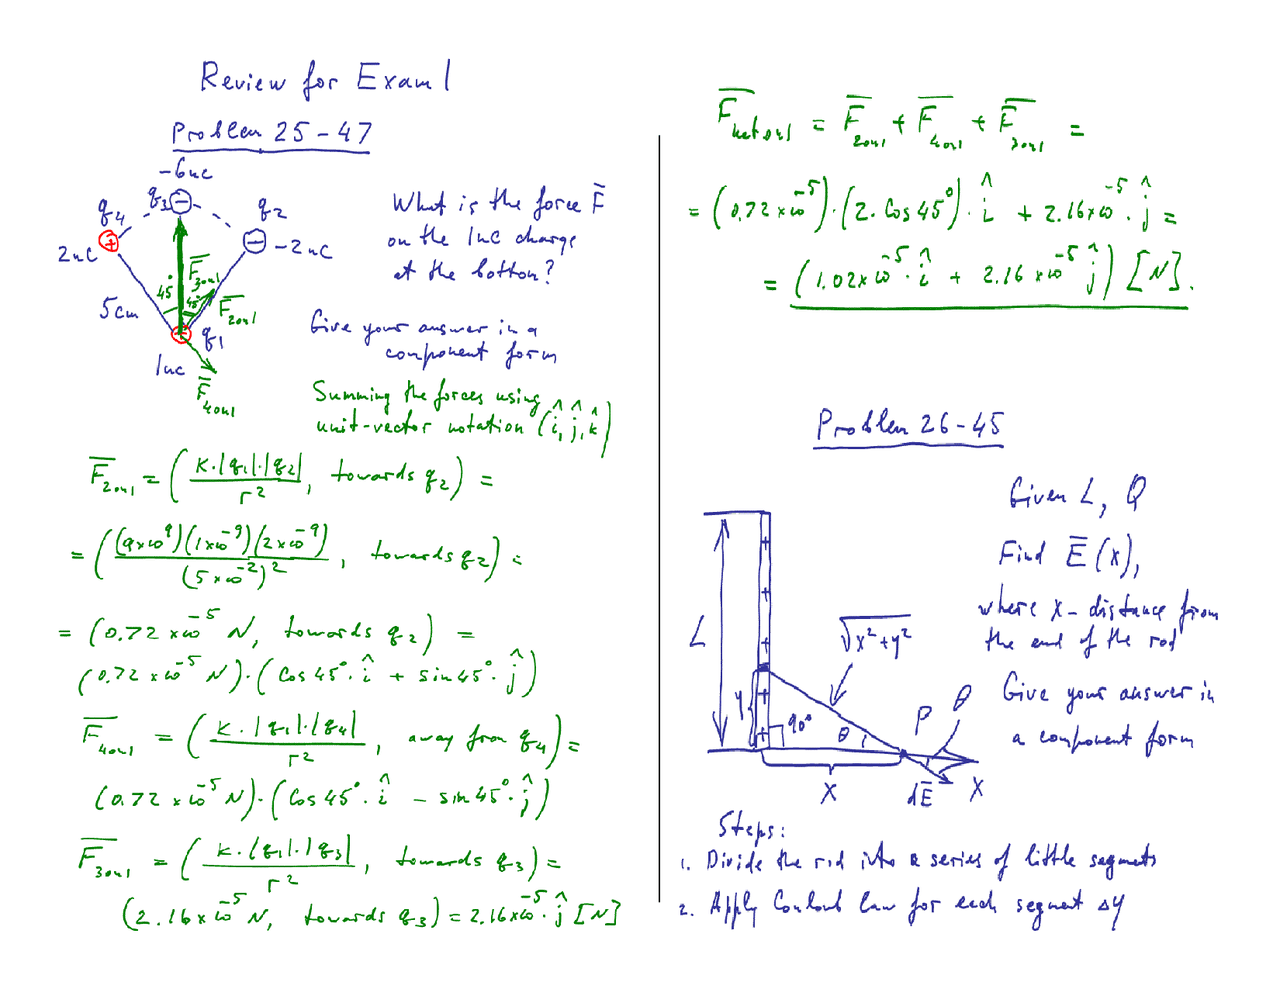 Review for Exam 1
Problem 25-47
-6nC
q3
q4
q2
2nC
-2nC
F̅3on1
45°
45°
F̅2on1
5cm
q1
1nC
F̅4on1
What is the force F̅
on the 1nC charge
at the bottom?
Give your answer in a
component form
Summing the forces using
unit-vector notation (î, ĵ, k̂)
F̅2on1 = (K·|q1|·|q2| / r², towards q2) =
= ((9×10⁹)(1×10⁻⁹)(2×10⁻⁹) / (5×10⁻²)², towards q2) =
= (0.72×10⁻⁵ N, towards q2) =
(0.72×10⁻⁵ N)·(Cos45°·î + sin45°·ĵ)
F̅4on1 = (K·|q1|·|q4| / r², away from q4) =
(0.72×10⁻⁵ N)·(Cos45°·î - sin45°·ĵ)
F̅3on1 = (K·|q1|·|q3| / r², towards q3) =
(2.16×10⁻⁵ N, towards q3) = 2.16×10⁻⁵·ĵ [N]
F̅net on1 = F̅2on1 + F̅4on1 + F̅3on1 =
= (0.72×10⁻⁵)·(2·Cos45°)·î + 2.16×10⁻⁵·ĵ =
= (1.02×10⁻⁵·î + 2.16×10⁻⁵ĵ) [N].
Problem 26-45
Given L, Q
Find E̅(x),
where x- distance from
the end of the rod
Give your answer in
a component form
L
√x²+y²
y
90°
θ
P
θ
x
dE̅
X
Steps:
1. Divide the rod into a series of little segments
2. Apply Coulomb law for each segment Δy